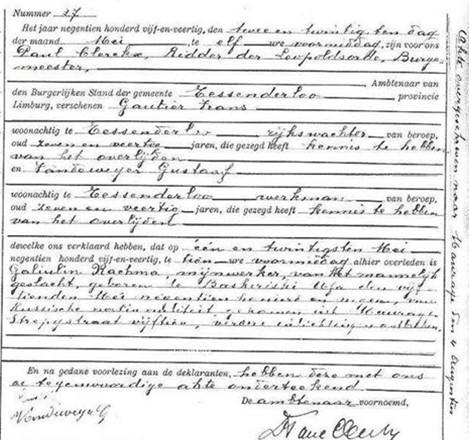 Nummer 27
Het jaar negentien honderd vijf-en-veertig, den twee en twintig sten dag
der maand Mei te elf ure voormiddag, zijn voor ons
Paul Clerckx, Ridder der Leopoldsorde, Burge-
meester,
Ambtenaar van
den Burgerlijken Stand der gemeente Tessenderloo provincie
Limburg, verschenen Gautier Frans
woonachtig te Tessenderloo rijkswachter van beroep,
oud zeven en veertig jaren, die gezegd heeft kennis te hebben
van het overlijden
en Vandeweyer Gustaaf
woonachtig te Tessenderloo werkman van beroep,
oud zeven en veertig jaren, die gezegd heeft kennis te hebben
van het overlijden
dewelke ons verklaard hebben, dat op één en twintigsten Mei
negentien honderd vijf-en-veertig, te tien ure voormiddag alhier overleden is
mijnwerker, van het mannelijk
geslacht, geboren te Baskeriski Ufa den vijf
tienden Mei negentien honderd en negen, van
Russische nationaliteit
vijftien, verdere inlichting
En na gedane voorlezing aan de deklaranten, hebben deze met ons
de tegenwoordige akte onderteekend.
De ambtenaar voornoemd,
Vandeweyer G
Akte overgeschreven naar Maurage den 4 Augustus